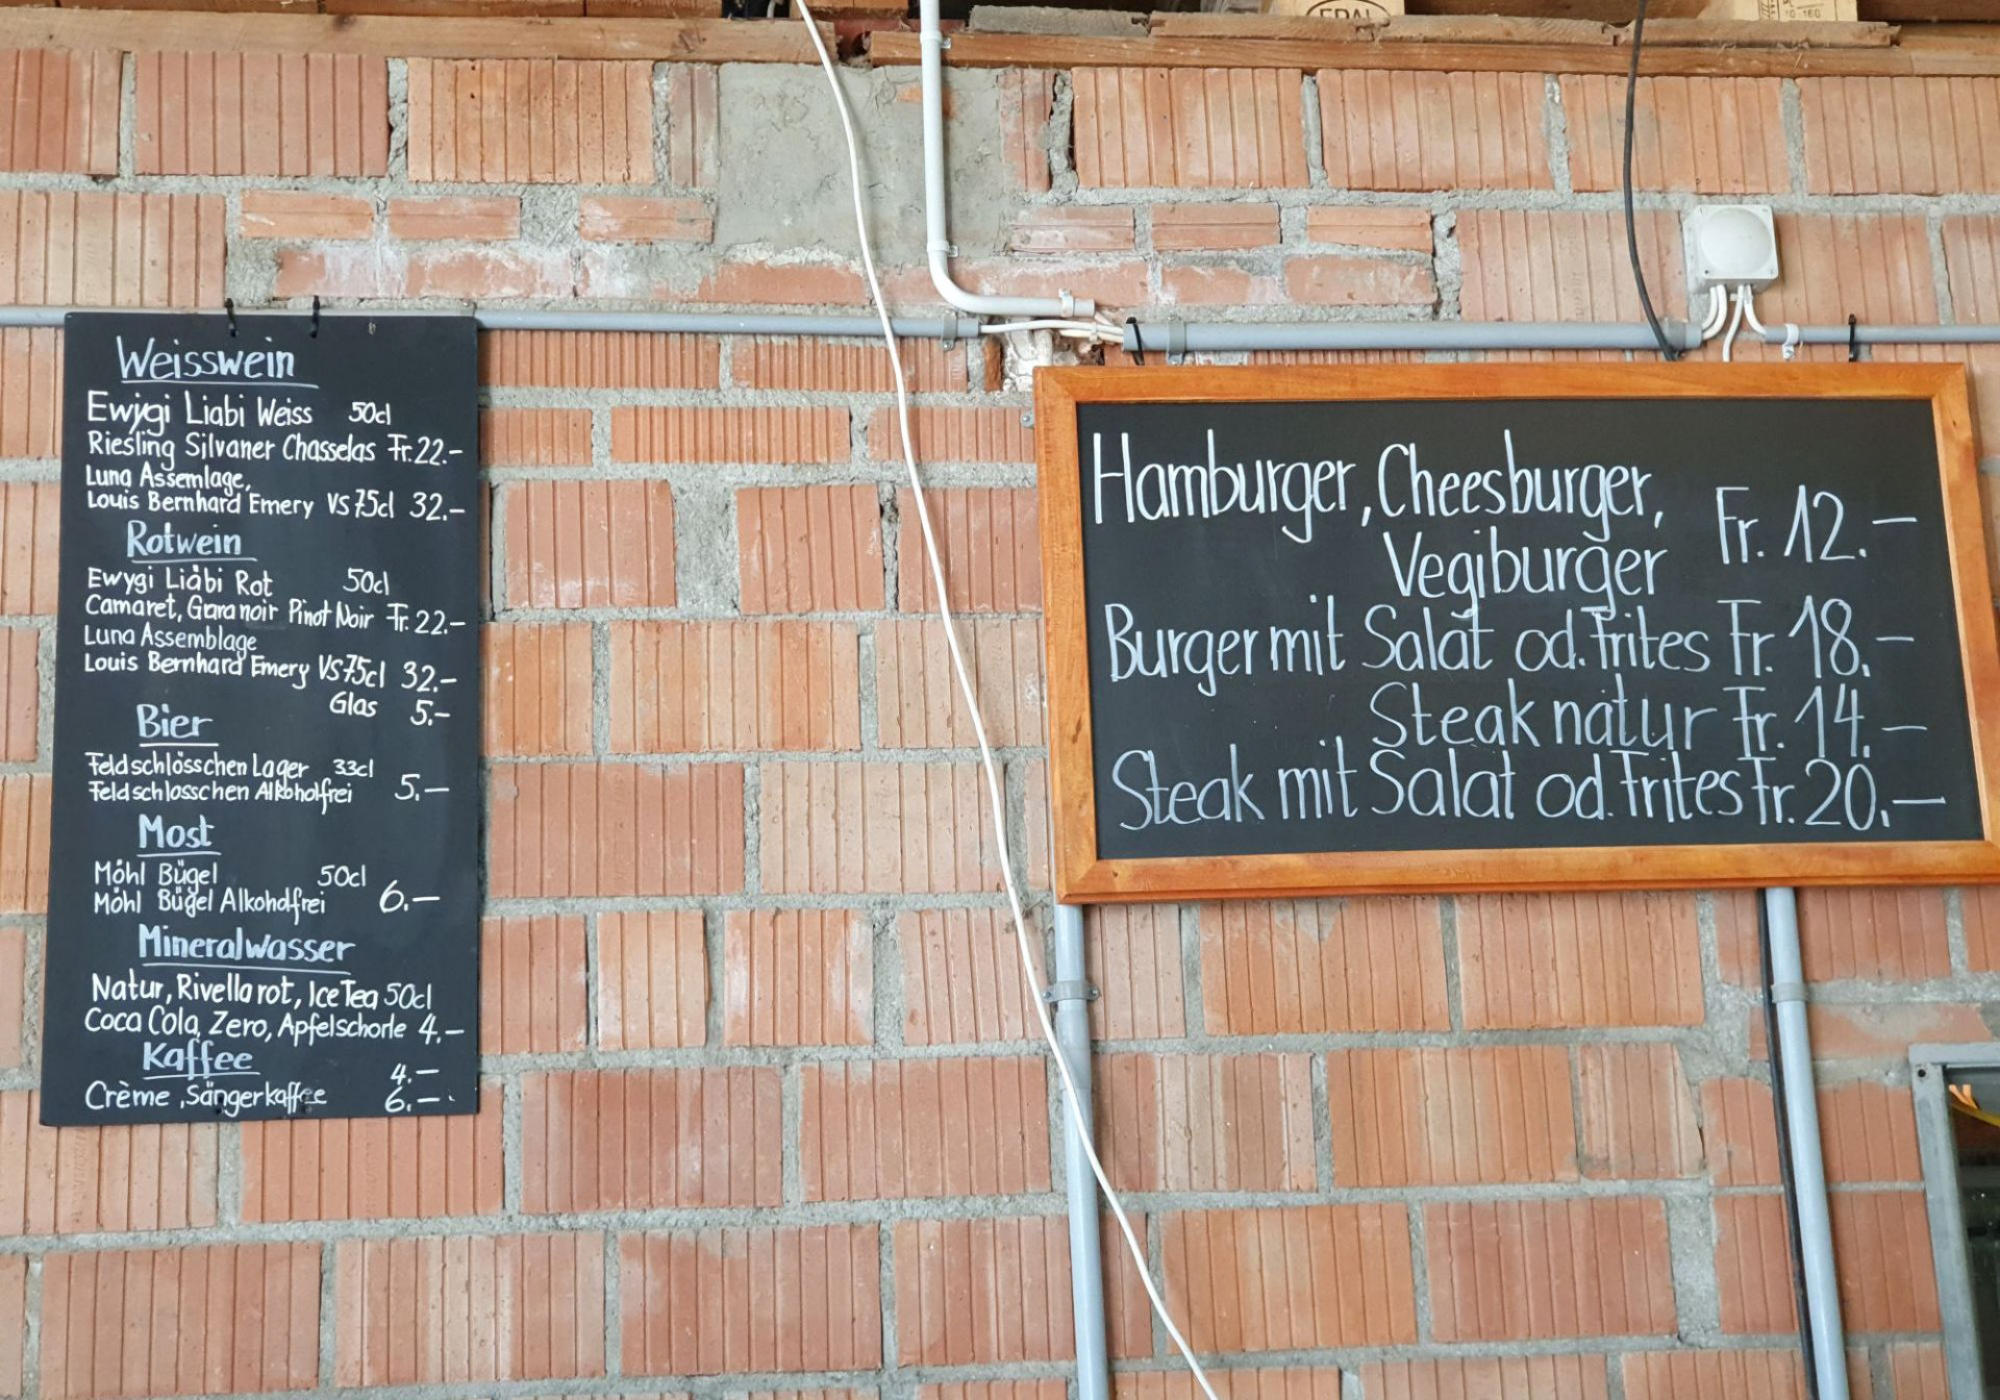 EPAL
Weisswein
Ewygi Liabi Weiss 50cl
Riesling Silvaner Chasselas Fr. 22.-
Luna Assemlage,
Louis Bernhard Emery VS 75cl 32.-
Rotwein
Ewygi Liabi Rot 50cl
Camaret, Garanoir Pinot Noir Fr. 22.-
Luna Assemblage
Louis Bernhard Emery VS 75cl 32.-
Glas 5.-
Bier
Feldschlösschen Lager 33cl
Feldschlosschen Alkoholfrei 5.-
Most
Möhl Bügel 50cl
Möhl Bügel Alkoholfrei 6.-
Mineralwasser
Natur, Rivella rot, Ice Tea 50cl
Coca Cola, Zero, Apfelschorle 4.-
Kaffee 4.-
Crème, Sängerkaffee 6.-
Hamburger, Cheesburger,
Vegiburger Fr. 12.-
Burger mit Salat od. Frites Fr. 18.-
Steak natur Fr. 14.-
Steak mit Salat od. Frites Fr. 20.-